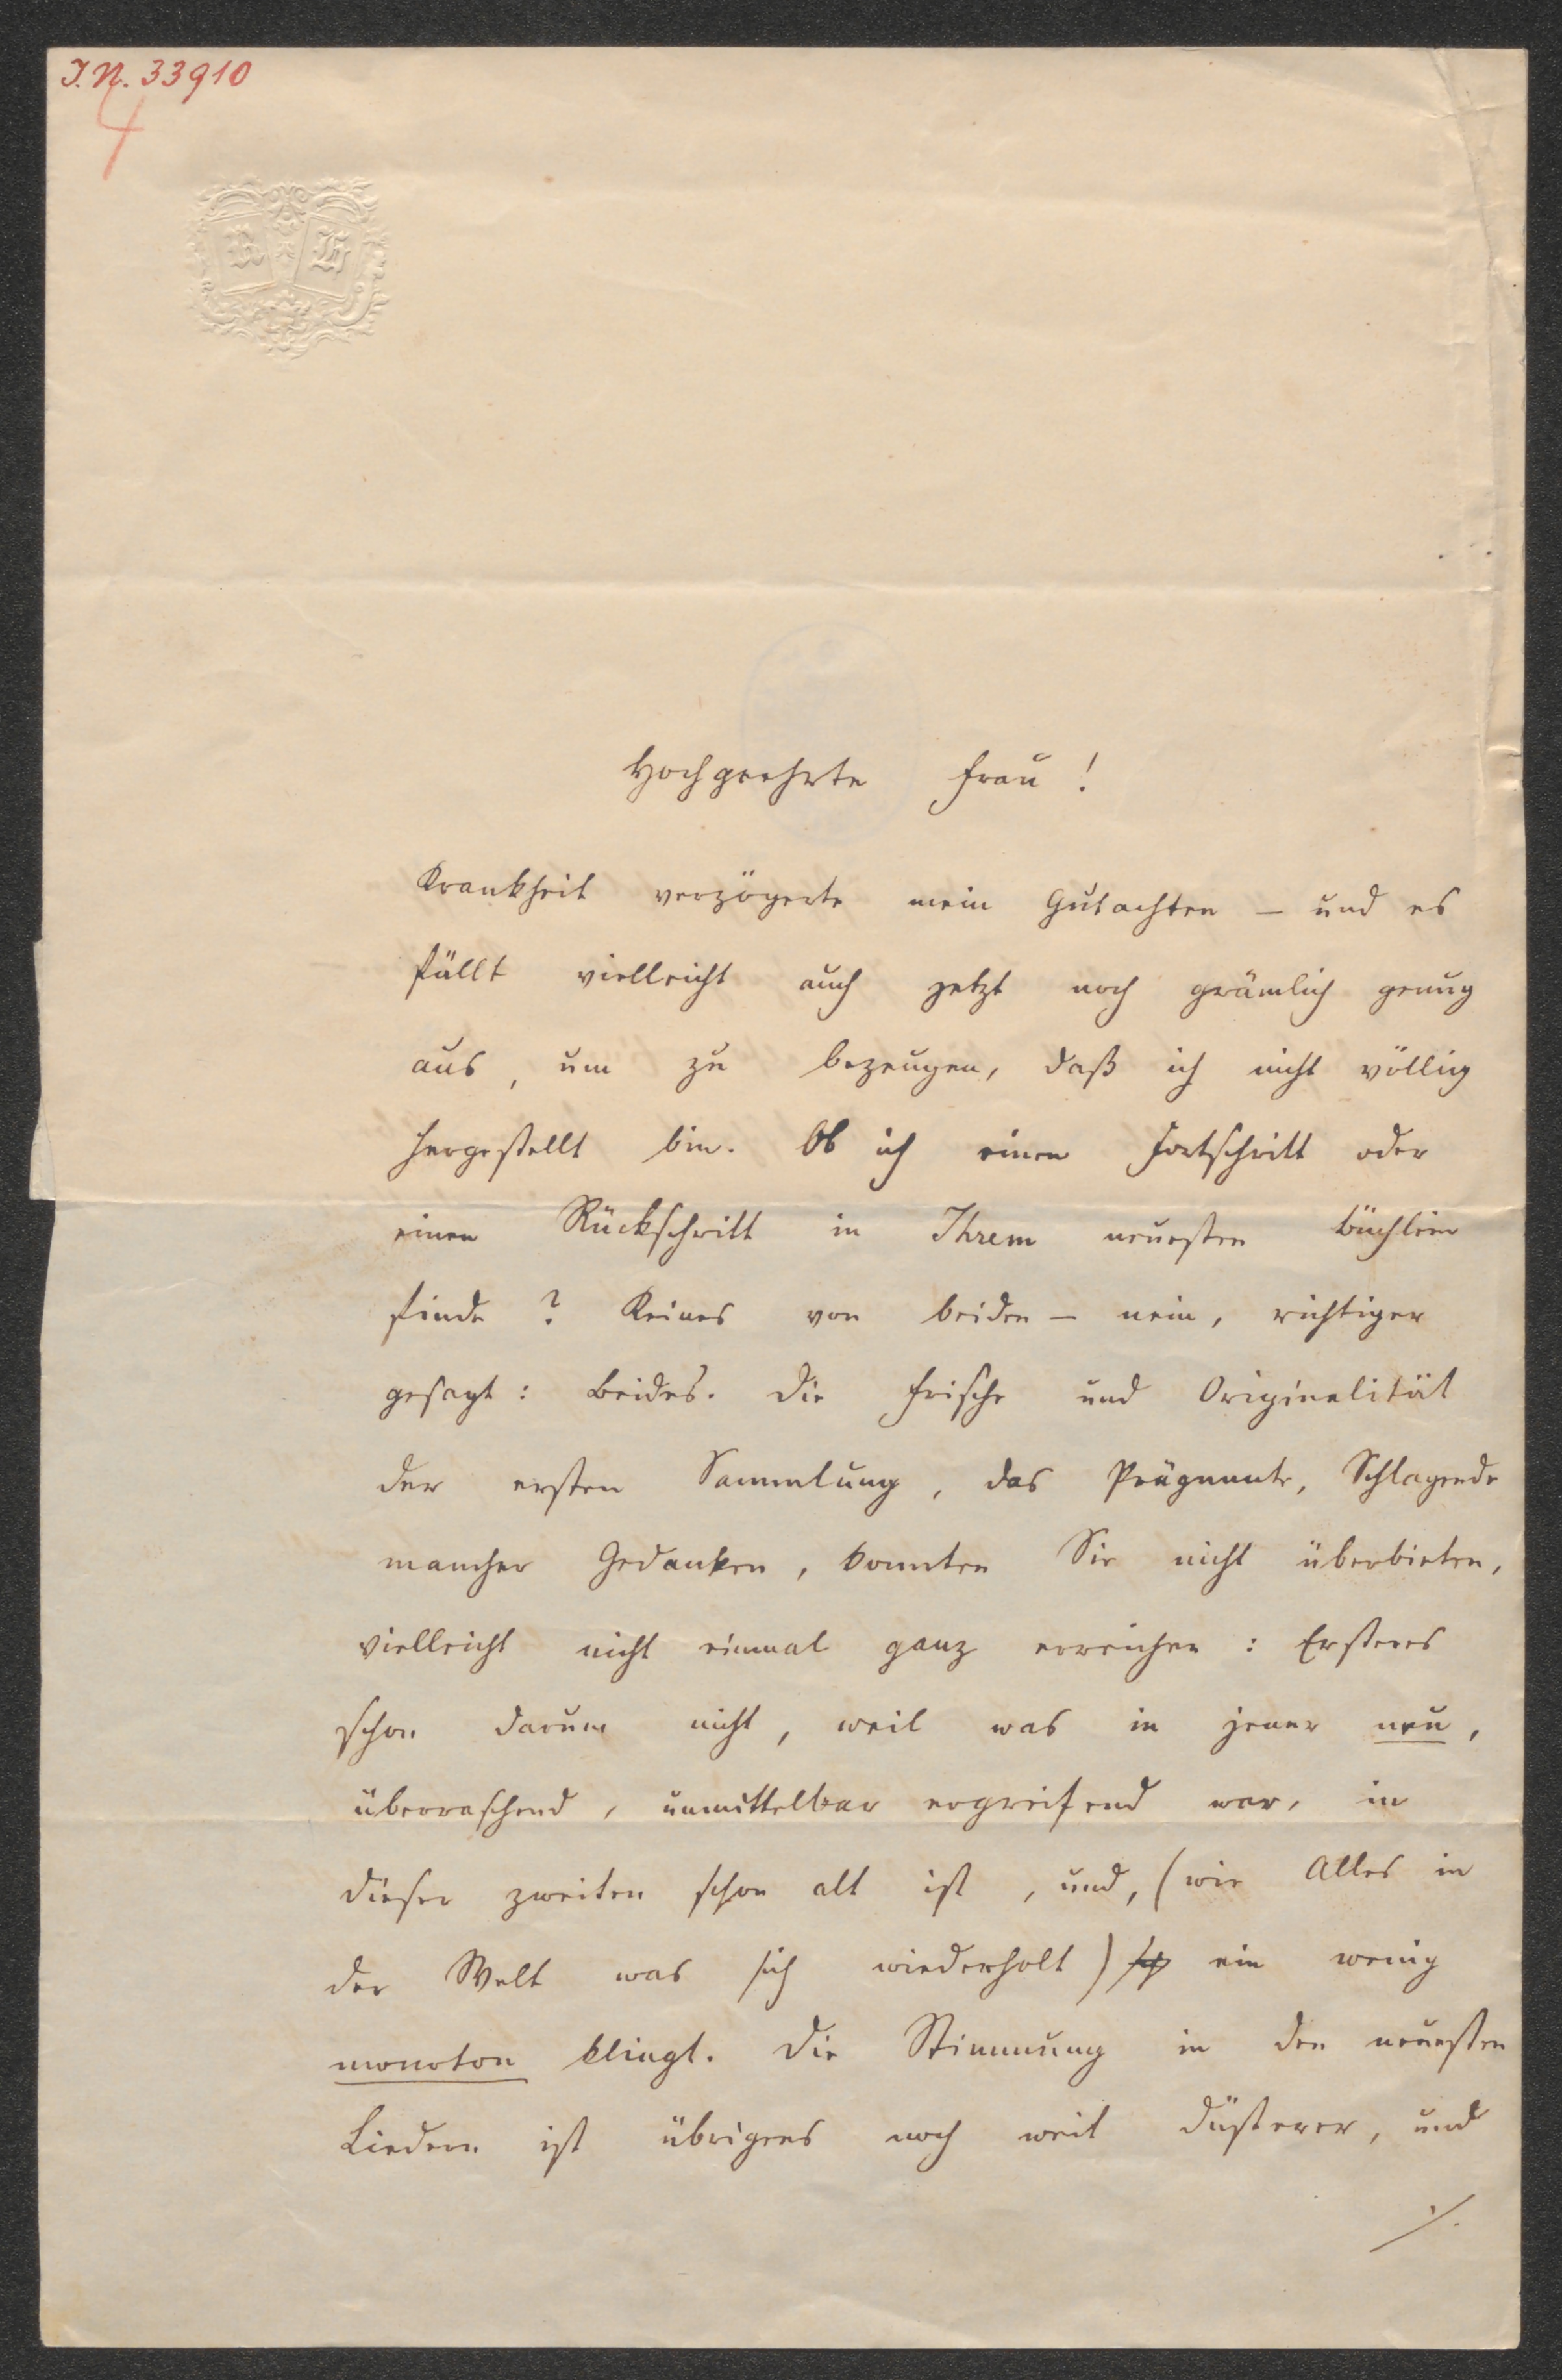 I.N. 33910
4
R H
Hochgeehrte Frau!
Krankheit verzögerte mein Gutachten – und es
fällt vielleicht auch jetzt noch grämlich genug
aus, um zu bezeugen, daß ich nicht völlig
hergestellt bin. Ob ich einen Fortschritt oder
einen Rückschritt in Ihrem neuesten Büchlein
finde? Keines von beiden – nein, richtiger
gesagt: Beides. Die Frische und Originalität
der ersten Sammlung, das Prägnante, Schlagende
mancher Gedanken, konnten Sie nicht überbieten,
vielleicht nicht einmal ganz erreichen: Ersteres
schon darum nicht, weil was in jener neu,
überraschend, unmittelbar ergreifend war, in
dieser zweiten schon alt ist, und, (wie Alles in
der Welt was sich wiederholt) ein wenig
monoton klingt. Die Stimmung in den neuesten
Liedern ist übrigens noch weit düsterer, und
./.